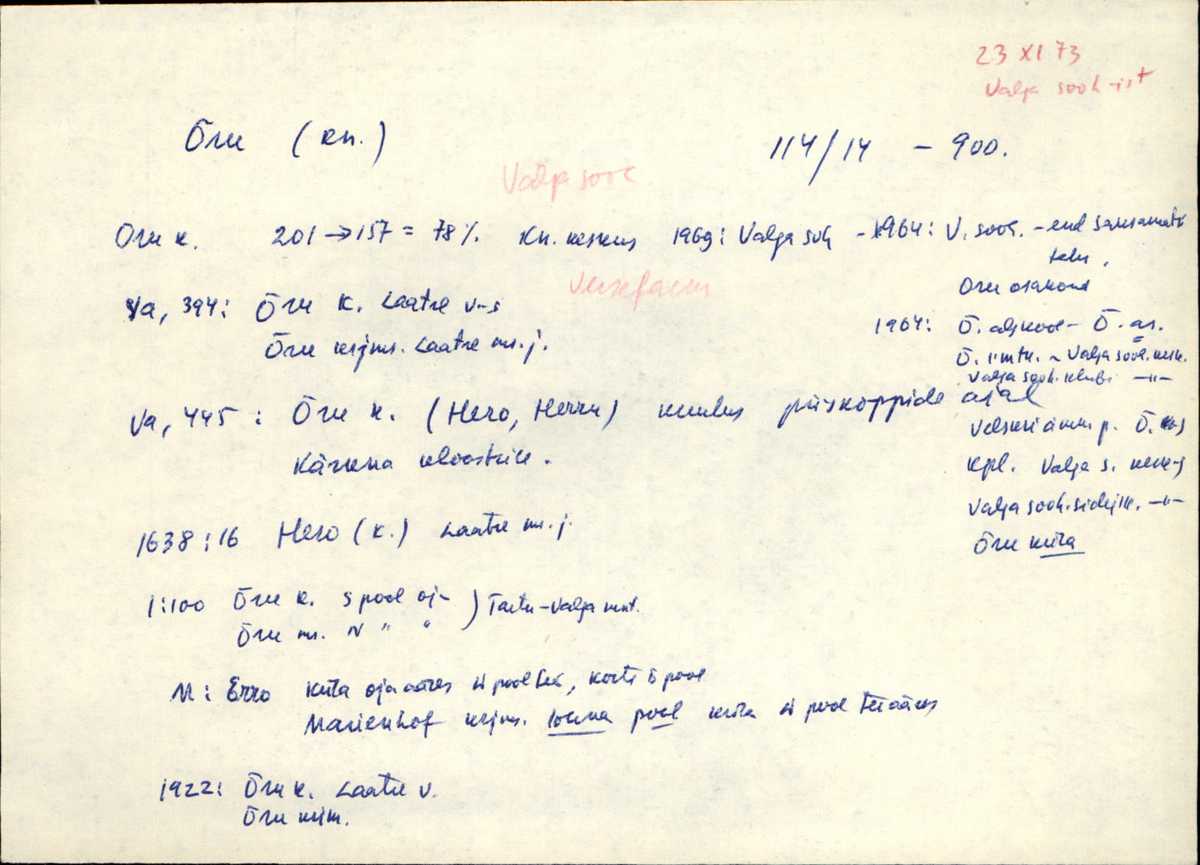 23 XI 73
Valga sovh-ist
Õru (kn.) 114/14 - 900.
Valga sovh
Oru k. 201 → 157 = 78%. Kn. keskus 1969: Valga sovh - 1964: V. sovh. - end
Oru osakond
Va, 394: Õru k. Laatre v-s
Õru krjms. Laatre ms. j.
1964: Õ. algkool - Õ. as.
Õ. rmtk. ~ Valga sovh. kesk.
Valga sovh. klubi —"—
Va, 445: Õru k. (Hero, Herru) kuulus piiskoppide ajal
Kärkna kloostrile.
Velskriämm. p. Õ. k-s
kpl. Valga s. kesk-s
Valga sovh. sidejsk. —"—
Õru küla
1638:16 Hero (k.) Laatre ms. j.
1:100 Õru k. S pool oja ) Tartu-Valga mnt.
Õru ms. N " "
M: Erro küla oja ääres
Marienhof krjms. lõuna pool küla pool tee ääres
1922: Õru k. Laatre v.
Õru